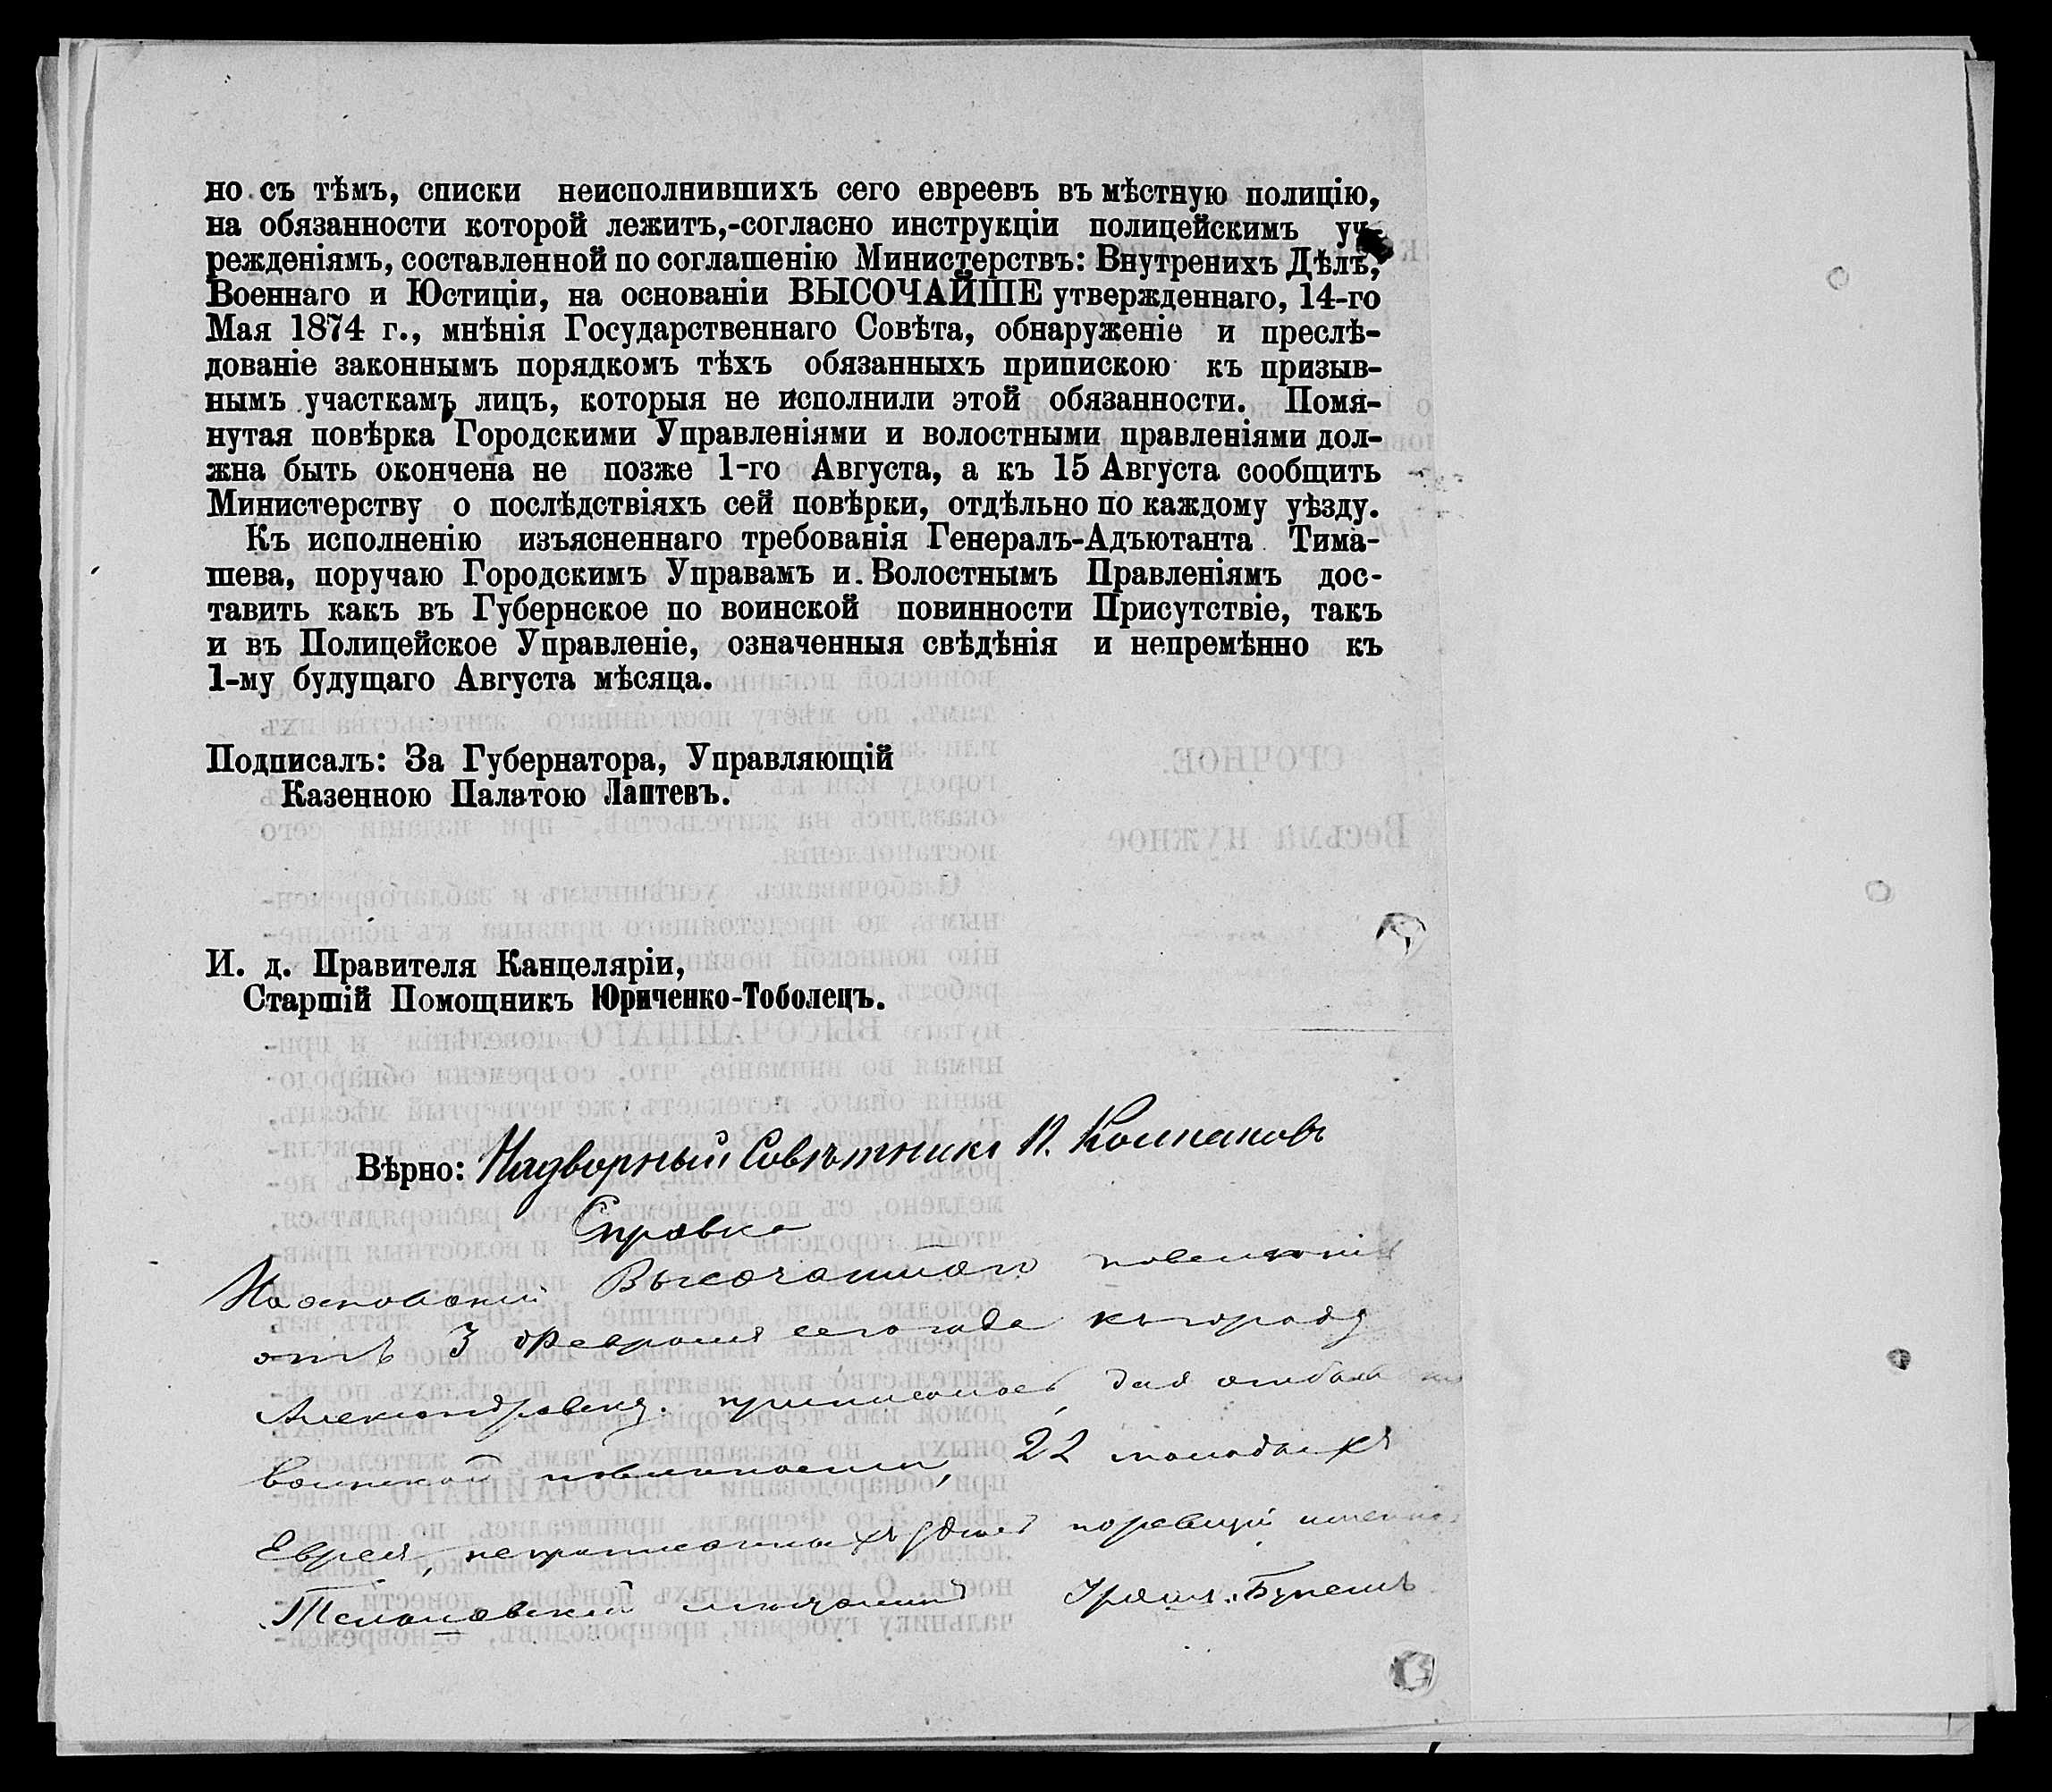 но съ тѣмъ, списки неисполнившихъ сего евреевъ въ мѣстную полицію,
на обязанности которой лежитъ,-согласно инструкціи полицейскимъ уч-
режденіямъ, составленной по соглашенію Министерствъ: Внутренихъ Дѣлъ,
Военнаго и Юстиціи, на основаніи ВЫСОЧАЙШЕ утвержденнаго, 14-го
Мая 1874 г., мнѣнія Государственнаго Совѣта, обнаруженіе и преслѣ-
дованіе законнымъ порядкомъ тѣхъ обязанныхъ припискою къ призыв-
нымъ участкамъ лицъ, которыя не исполнили этой обязанности. Помя-
нутая повѣрка Городскими Управленіями и волостными правленіями дол-
жна быть окончена не позже 1-го Августа, а къ 15 Августа сообщить
Министерству о послѣдствіяхъ сей повѣрки, отдѣльно по каждому уѣзду.
Къ исполненію изъясненнаго требованія Генералъ-Адъютанта Тима-
шева, поручаю Городскимъ Управамъ и Волостнымъ Правленіямъ дос-
тавить какъ въ Губернское по воинской повинности Присутствіе, такъ
и въ Полицейское Управленіе, означенныя свѣдѣнія и непремѣнно къ
1-му будущаго Августа мѣсяца.
Подписалъ: За Губернатора, Управляющій
Казенною Палатою Лаптевъ.
И. д. Правителя Канцеляріи,
Старшій Помощникъ Юриченко-Тоболецъ.
Вѣрно: Надворный Совѣтникъ П. Колпаковъ
Справка
На основаніи Высочайшаго повелѣнія
отъ 3 Февраля сего года къ городу
Александровску приписалось для отбыванія
воинской повинности, 22 молодыхъ
Еврея,